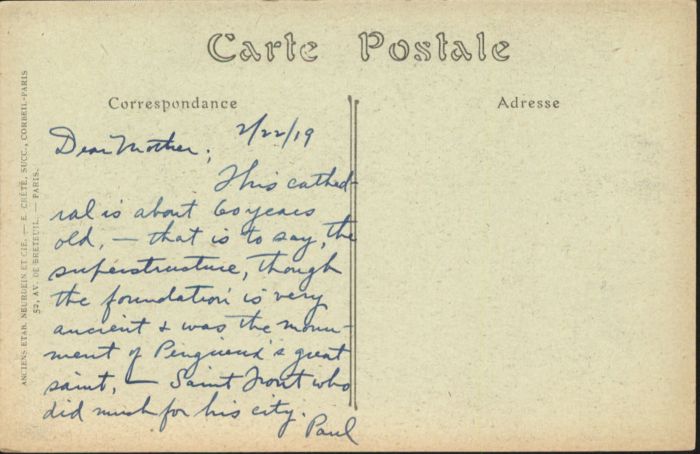 Carte Postale
Correspondance
Adresse
2/22/19
Dear Mother;
This cathed-
ral is about 60 years
old, — that is to say, the
superstructure, though
the foundation is very
ancient & was the monu-
ment of Perigueux's great
saint, — Saint Front who
did much for his city.
Paul
ANCIENS ETAB. NEURDEIN ET CIE. — E. CRÉTÉ, SUCC., CORBEIL-PARIS
52, AV. DE BRETEUIL. — PARIS.